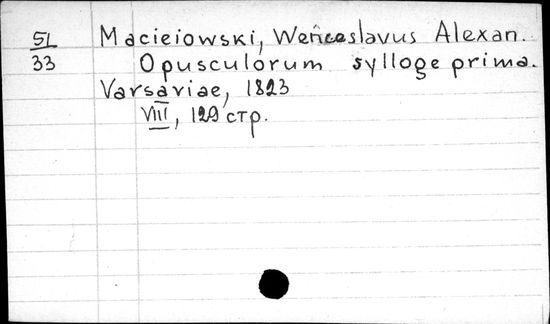 51 Macieiowski, Wenceslavus Alexan.
33 Opusculorum sylloge prima.
Varsaviae, 1823
VIII, 129 стр.